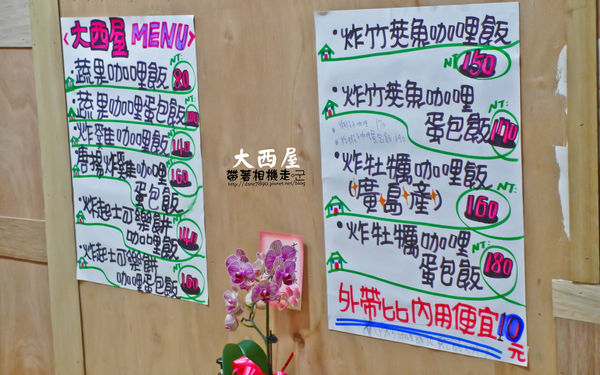 <大西屋 MENU>
·蔬果咖哩飯 NT 80
·蔬果咖哩蛋包飯
·炸雞咖哩飯 140
唐揚炸雞咖哩
蛋包飯 160
·炸起士可樂餅
咖哩飯 140
·炸起士可樂餅
咖哩蛋包飯 160
大西屋
帶著相機走一空
·炸竹莢魚咖哩飯
NT 150
·炸竹莢魚咖哩
蛋包飯 NT: 170
·炸牡蠣咖哩飯
(廣島產) NT: 160
·炸牡蠣咖哩
蛋包飯 NT: 180
外帶比內用便宜10元